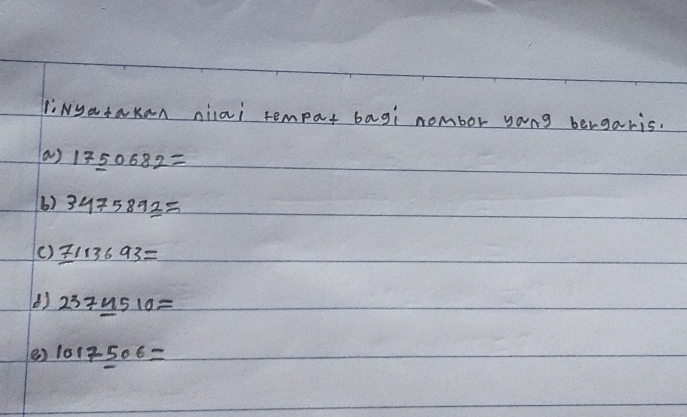 1. Nyatakan nilai tempat bagi nombor yang bergaris.
a) 1750682=
b) 3475892=
c) 7113693=
d) 2374510=
e) 1017506=